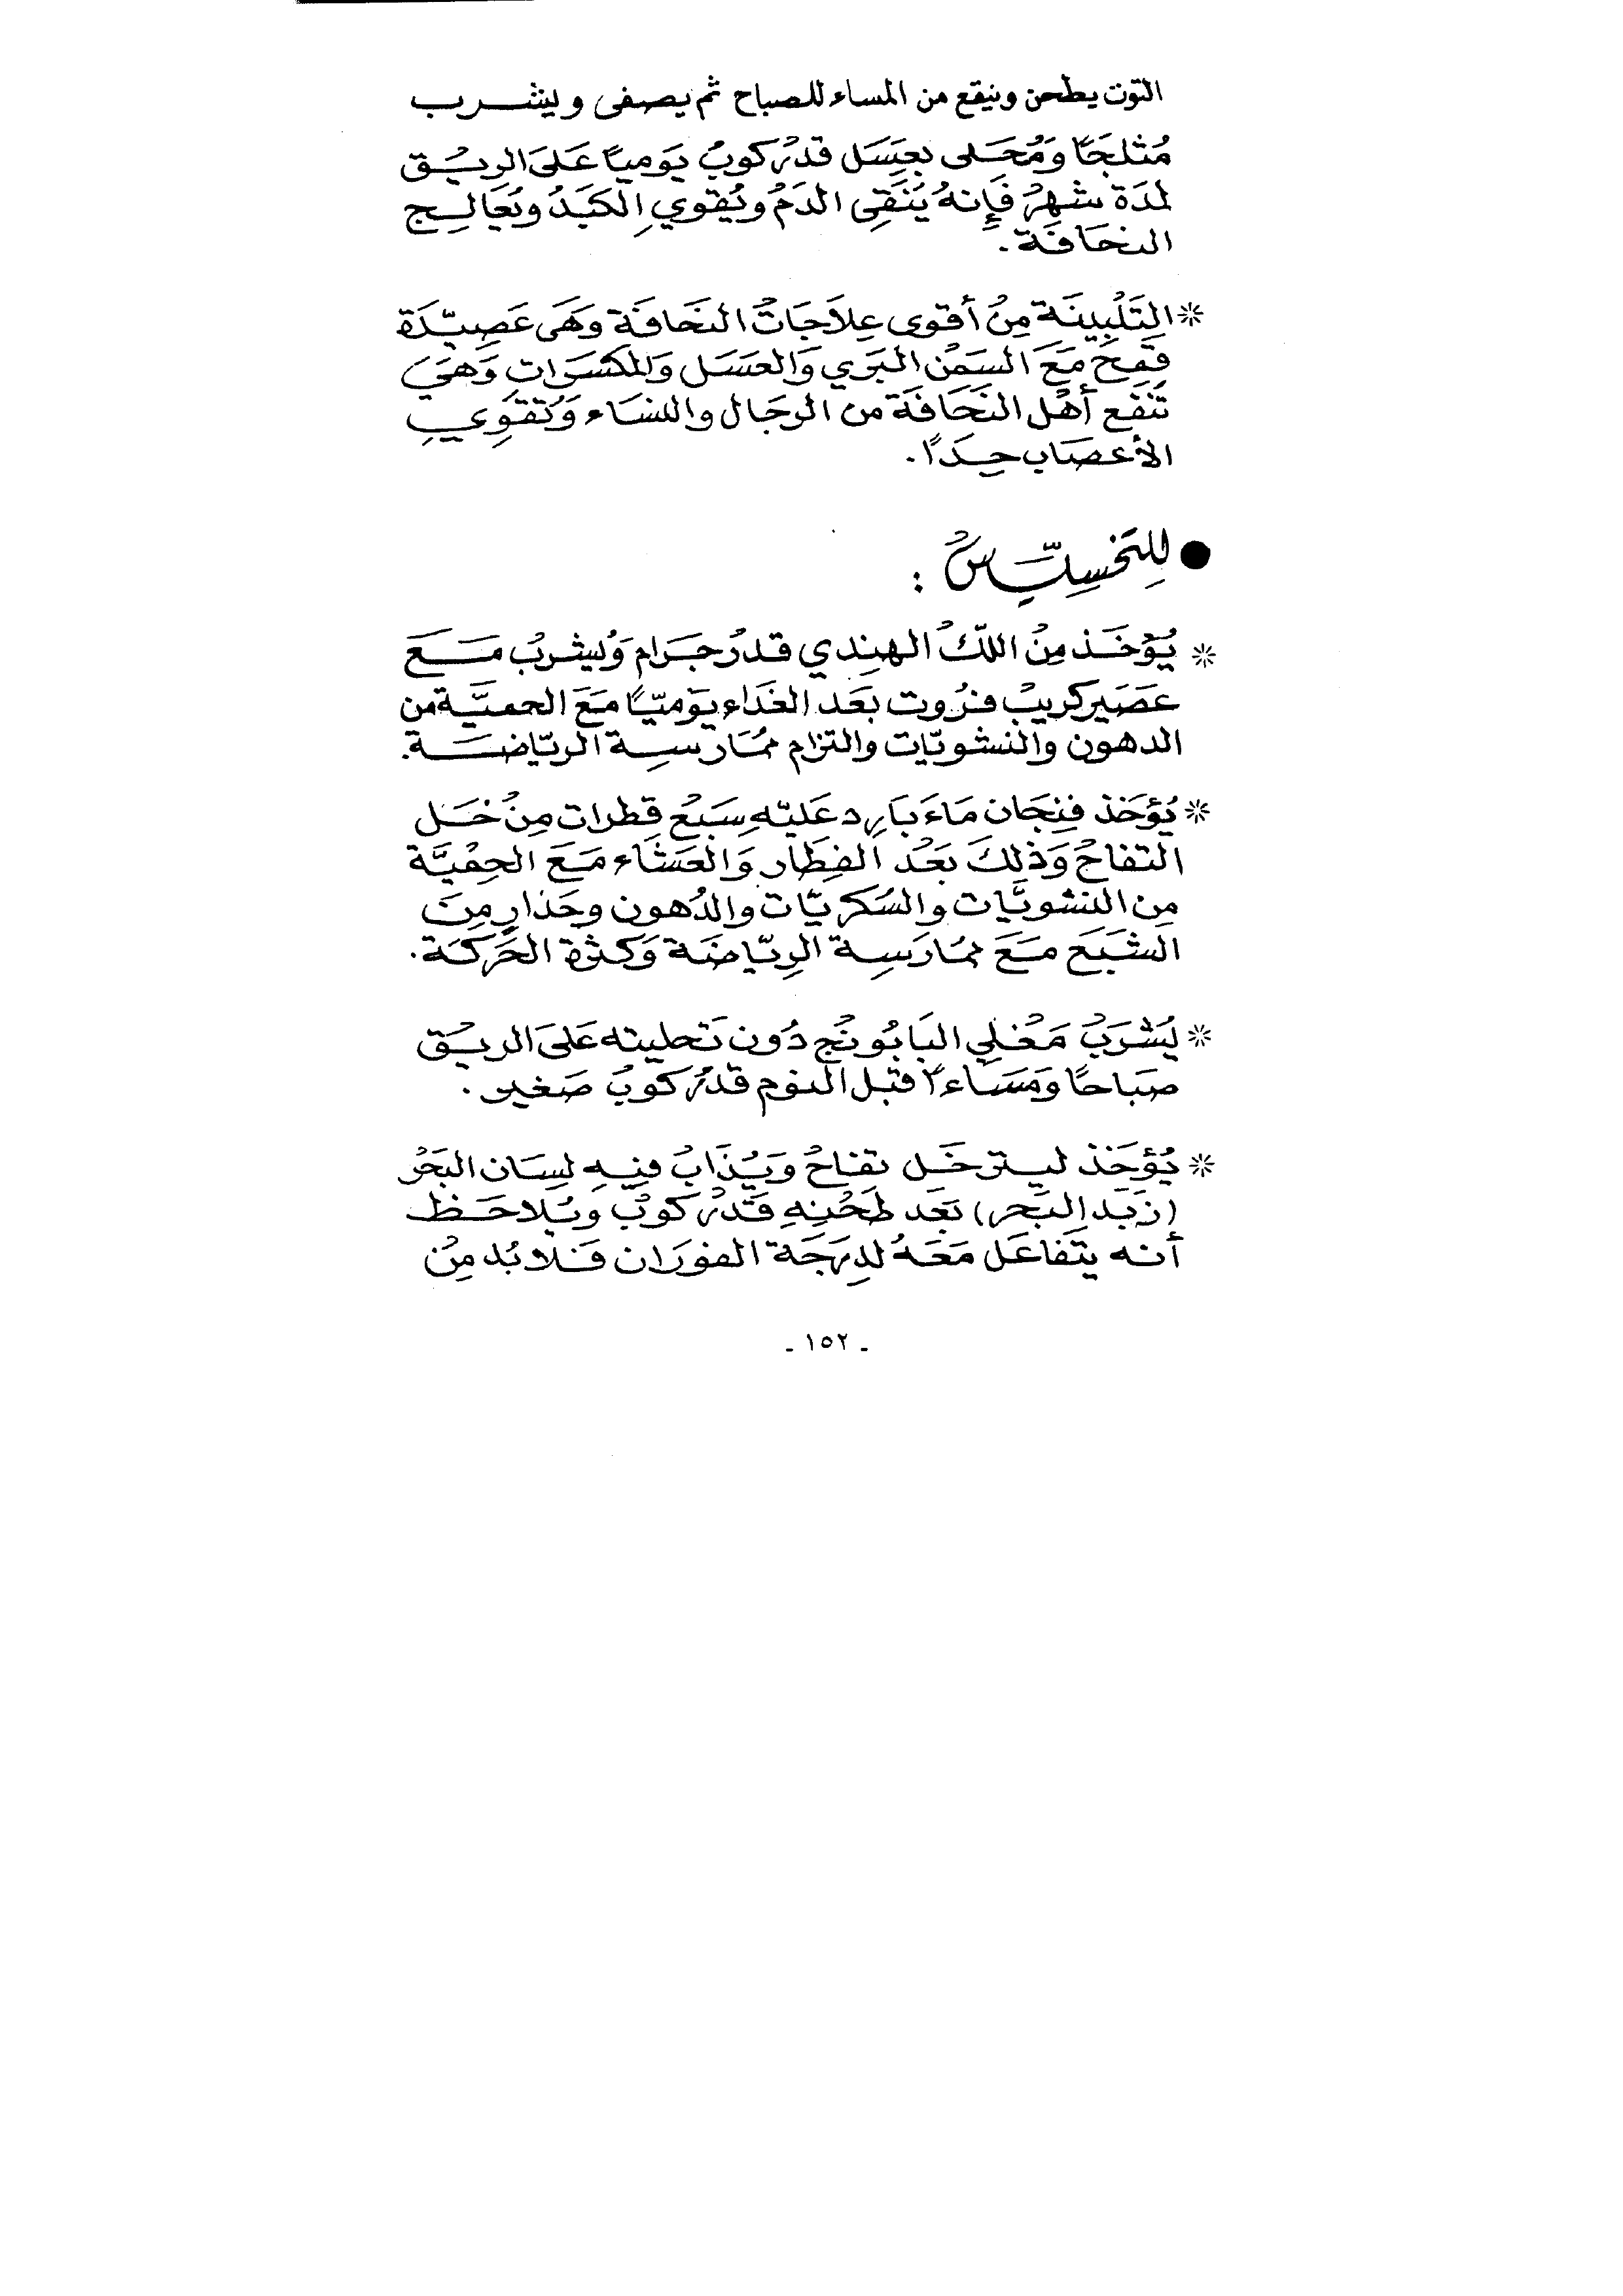 التوت يطحن وينقع من المساء للصباح ثم يصفى ويشرب
مُثلجًا وَمُحَلى بعِسَل قدْر كوبْ يَوميًا عَلىَ الريْق
لمدَة شهرْ فَإِنهُ يُنَقِى الدَمْ ويُقوي الكَبَدْ ويُعَالج
النحَافَة .
* التَلْبِينَة مِنْ أقوى عِلاَجَاتْ النحَافَة وَهَى عَصِيْدَة
قمِح مَعَ السَمْن البَرَي وَالعَسَل وَالمكسَرَاتِ وَهيَ
تَنفَع أهْل النَحَافَة من الرجَال والنسَاء وَتُقوِي
الأعصَاب جِدَاً .
● لِلتخسِيْسْ :
* يُؤخَذ مِنْ اللكْ الهِندِي قدْر جرَام وَيُشربْ مَعَ
عصَير كريبْ فرُوت بعَد الغَدَاء يَوْميًّا مَعَ الحميَّة من
الدهون والنشويّات والتزام ممُارسِة الريَاضَة .
* يُؤخَذ فِنجَان مَاءَ بَارِد عَليْهِ سَبعْ قِطرات مِنْ خَل
التفاحْ وَذلكَ بَعْد الفِطَار وَالعَشَاء مَعَ الحِمْيَّة
مِن النشويَّات والسُكريّات والدُهون وحَذارِ مِنَ
الشبَع مَعَ ممُارَسِة الرِيّاضَة وَكثرة الحَركَة .
* يُشْرَبْ مَغْلي البَابُونْج دُون تَحليته عَلىَ الريْق
صبَاحًا وَمَسَاءً قبْل النوم قدْر كوبْ صَغير .
* يُؤخَذ ليتر خَل تفاحْ وَيُذَابْ فيِهِ لِسَان البَحْر
(زبَد البَحر) بَعَد طَحْنِهِ قَدْر كوبْ ويُلاحَظ
أنه يتَفاعَل مَعَهُ لدِرَجَة الفورَان فَلا بُد مِنْ
ـ ١٥٢ ـ